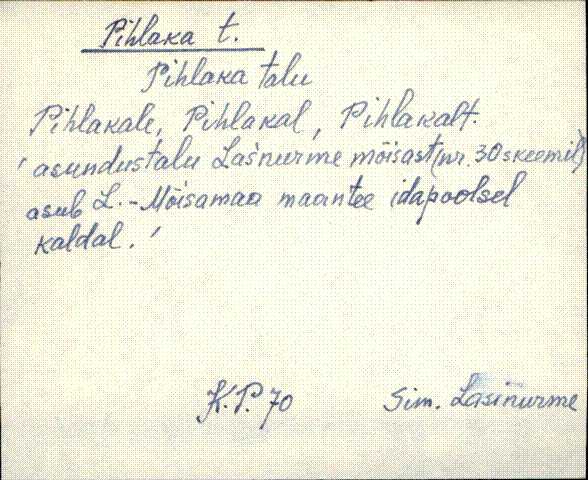 Pihlaka t.
Pihlaka talu
Pihlakale, Pihlakal, Pihlakalt.
'asundustalu Lasnurme mõisast (nr. 30 skeemil)
asub L.-Mõisamaa maantee idapoolsel
kaldal.'
K.P. 70 Sim. Lasinurme